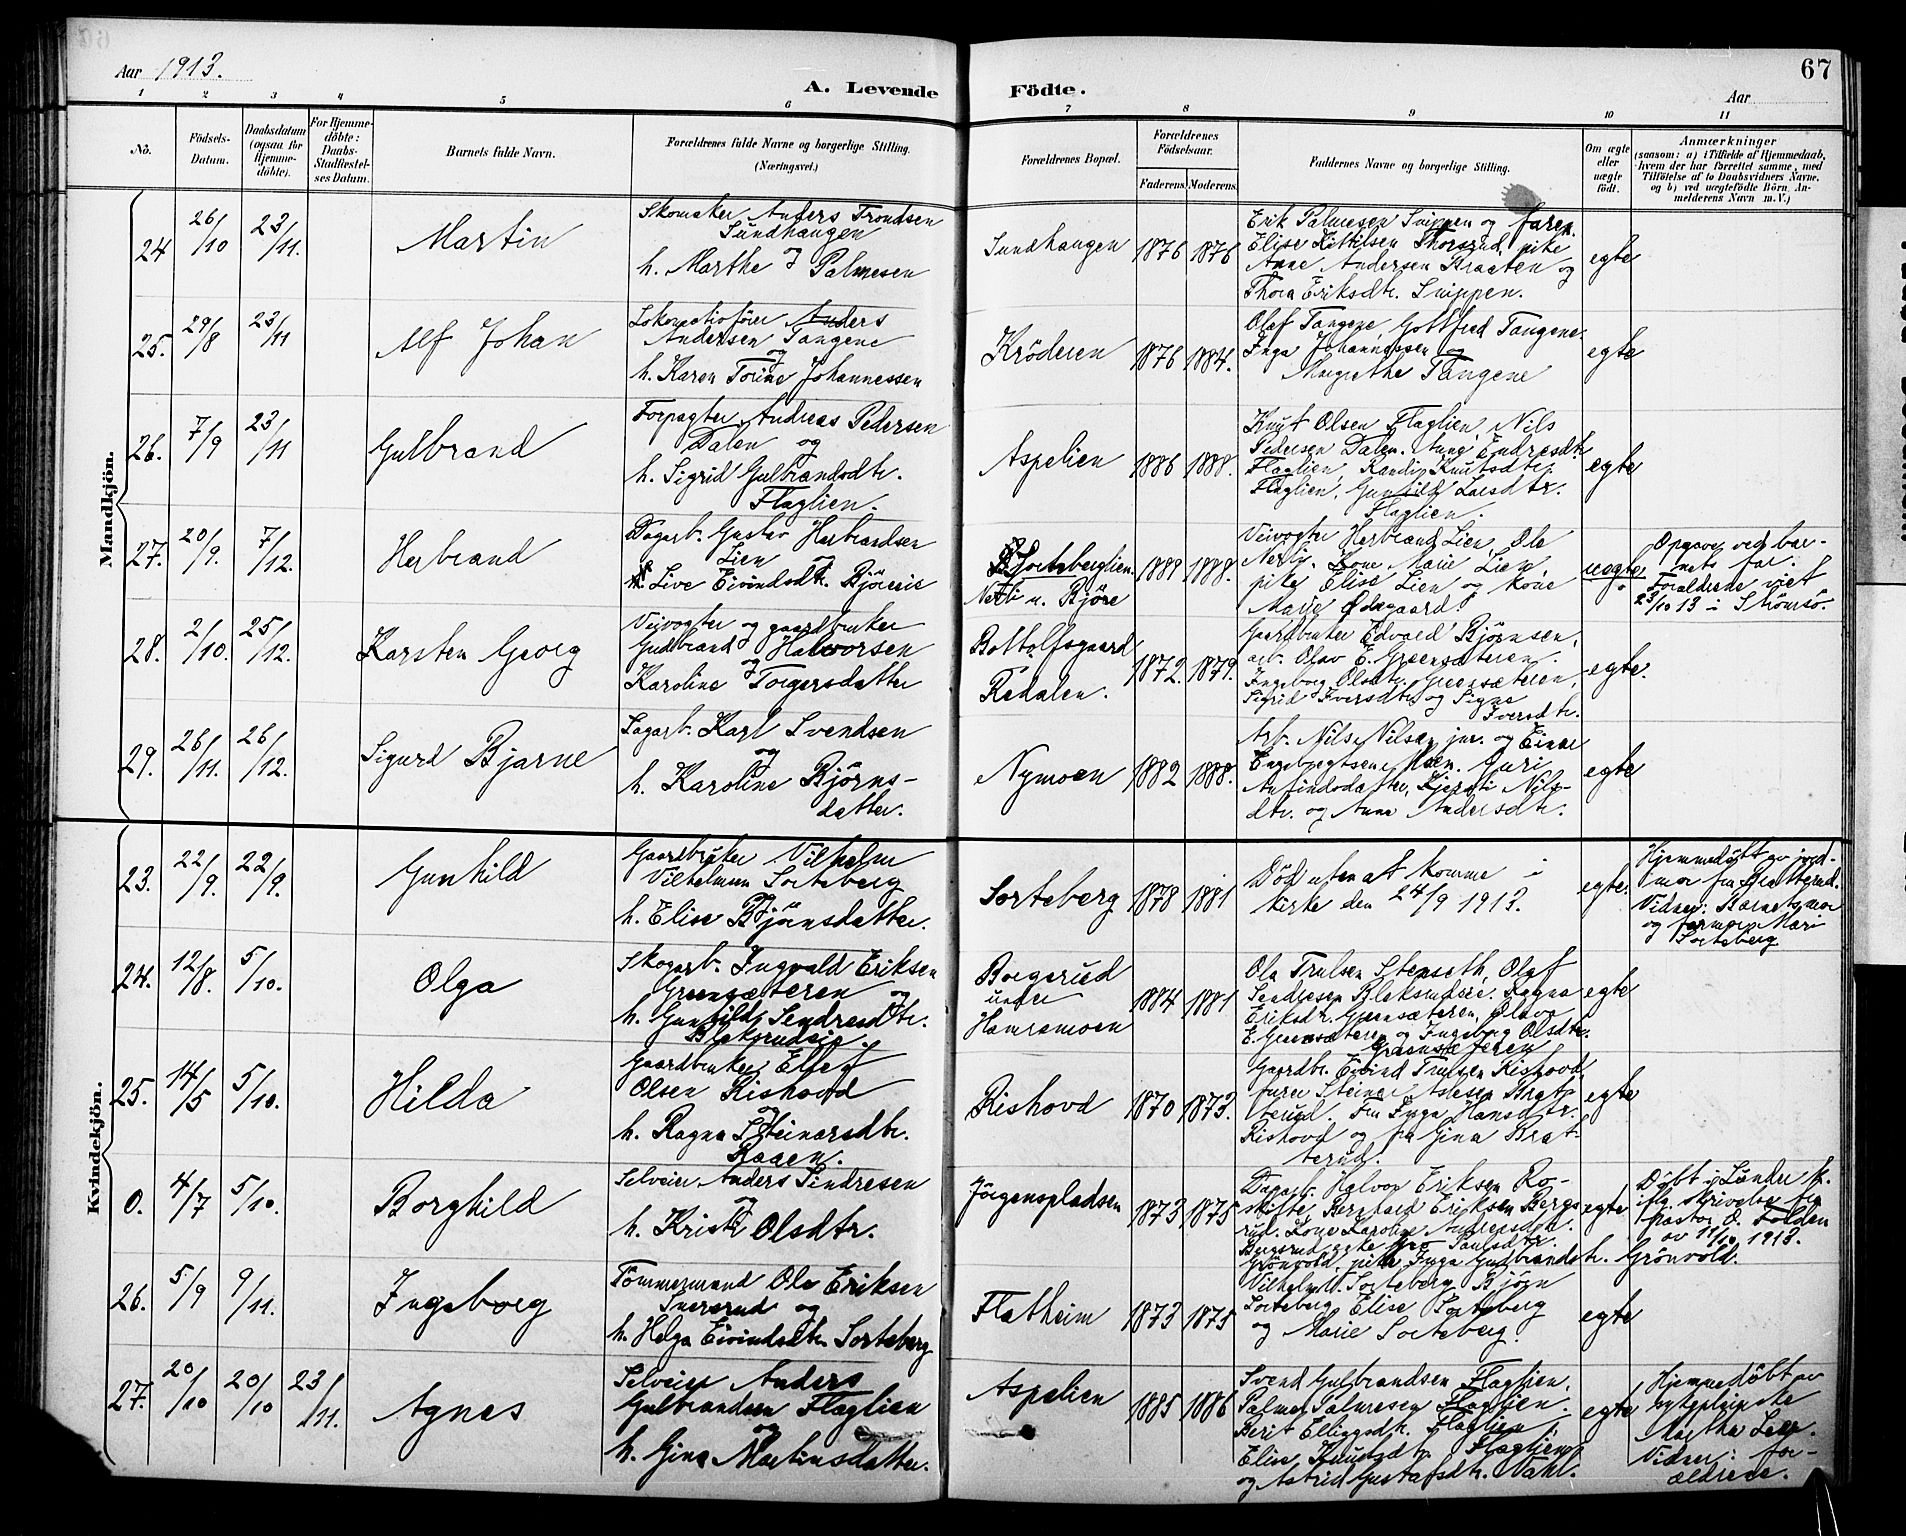 Aar 1913.
A. Levende Födte.
67
Aar
1 2 3 4 5 6 7 8 9 10 11
No.
Födsels-Datum.
Daabsdatum (ogsaa for Hjemme-döbte).
For Hjemme-döbte: Daabs-Stadfæstel-ses Datum.
Barnets fulde Navn.
Forældrenes fulde Navne og borgerlige Stilling. (Næringsvei.)
Forældrenes Bopæl.
Forældrenes Födselsaar.
Faderens. Moderens.
Faddernes Navne og borgerlige Stilling.
Om ægte eller uægte födt.
Anmærkninger
(saasom: a) i Tilfælde af Hjemmedaab, hvem der har forrettet samme, med Tilföielse af to Daabsvidners Navne, og b) ved uægtefödte Börn, Anmelderens Navn m.V.)
Mandkjön.
24 26/10 23/11. Martin
Skomaker Anders Trondsen
Sundhaugen
og
h. Marthe Palmesen
Sundhaugen 1876 1876
Erik Palmesen Snippen og faren.
Elise Kittilsen Thorsrud, pike
Anne Andersen Braaten og
Thora Eriksdtr. Snippen.
egte
25. 29/8 23/11 Alf Johan
Lokomotivfører Anders
Andersen Tangene
og
h. Karen Torine Johannessen
Kröderen 1876 1884.
Olaf Tangene, Gottfred Tangene.
Inga Johannessen og
Margrethe Tangene
egte
26. 7/9 23/11 Gulbrand
Forpagter Andreas Pedersen
Dalen og
h. Sigrid Gulbrandsdtr.
Flaglien.
Aspelien 1886 1888.
Knut Olsen Flaglien, Nils
Pedersen Dalen. Anne Endresdtr.
Flaglien, Randi Knutsdtr.
Flaglien, Gunhild Larsdtr.
Flaglien.
egte
27. 20/9. 7/12. Herbrand
Dagarb. Gustav Herbrandsen
Lien og
Live Eivindsdtr. Björeie
Sorteberglien.
Nerli u. Björe
1889 1888.
Veivogter Herbrand Lien, Ole
Nerli. Kone Marie Lien,
pike Elise Lien og kone
Marie Ødegaard.
uegte
Opgave ved bar-
nets far.
Forældrene viet
23/10 13 i Strömsö.
28. 2/10. 25/12. Karsten Georg
Veivogter og gaardbruker
Gudbrand Halvorsen
og
Karoline Torgersdatter
Bottolfsgaard
Redalen.
1872. 1879.
Gaardbruker Edvard Bjørnsen,
arb. Olav E. Grensæteren.
Ingeborg Olsdtr. Grensæteren,
Sigrid Iversdtr. og Signe
Iversdtr.
egte.
29. 26/11. 26/12. Sigurd Bjarne
Sagarb. Karl Svendsen
og
h. Karoline Björns-
datter.
Nymoen 1882 1888.
Arb. Nils Nilsen jur. og Einar
Engebregtsen Moen. Guri
Arfindsdatter, Kjersti Nils-
dtr. og Anna Andersdtr.
egte
Kvindekjön.
23. 22/9. 22/9. Gunhild
Gaardbruker Vilhelm
Vilhelmsen Sorteberg
og
h. Elise Björnsdatter.
Sorteberg 1878 1881
Død uten at komme i
kirke den 24/9 1913.
egte.
Hjemmedöbt av jord-
mor fru Brattrud.
Vidner: Barnets mor
og farmor Mari
Sorteberg
24. 12/8. 5/10. Olga
Skogarb. Ingvald Eriksen
Grensæteren og
h. Gunhild Sendresdtr.
Blaksrudeie.
Borgerud
under
Hamremoen
1884 1881
Ole Trulsen Stenseth, Olaf
Sendresen Blaksrudeie. Ragna
Eriksdtr. Grensæteren, Olava
E. Grensæteren og Ingeborg Olsdtr.
Grensæteren
egte
25. 14/5 5/10. Hilda
Gaardbruker Ellef
Olsen Rishovd
og
h. Ragna Steinarsdtr.
Raaen.
Rishovd 1870 1873.
Gaardbr. Eivind Trulsen Rishovd,
furer Steinar Aslesen Brat-
terud. Fru Inga Hansdtr.
Rishovd og fru Gina Brat-
terud.
egte
0. 4/7 5/10. Borghild
Selveier Anders Sindresen
og
h. Kristi Olsdtr.
Jörgenspladsen 1873 1875
Dagarb. Halvor Eriksen Ro-
skifte, Bernhard Eriksen Bergs-
rud. Kone Karoline Andersdtr.
Bergsrud, pike Gro Paulsdtr.
Grönvold, pike Inga Gulbrandsdtr. Grönvold.
egte
Döbt i Lunder k.
iflg. skrivelse fra
pastor O. Folden
av 11/10 1913.
26. 5/9 9/11. Ingeborg
Tömmermand Ole Eriksen
Sversrud og
h. Helga Eivindsdtr. Sorteberg
Flatheim 1873 1875
Vilhelm V. Sorteberg, Björn
Sorteberg, Elise Sorteberg
og Marie Sorteberg.
egte
27. 20/10 20/10 23/11. Agnes
Selveier Anders
Gulbrandsen Flaglien
og
h. Gina Martinsdatter.
Aspelien 1885 1886
Svend Gulbrandsen Flaglien,
Palmer Palmesen Flaglien.
Berit Ellingsdtr. Flaglien,
Elise Knutsdtr. Flaglien
og Astrid Gustafsdtr. Vahl.
egte
Hjemmedöbt av
sykepleierske
Martha Lær.
Vidner: for-
ældrene.